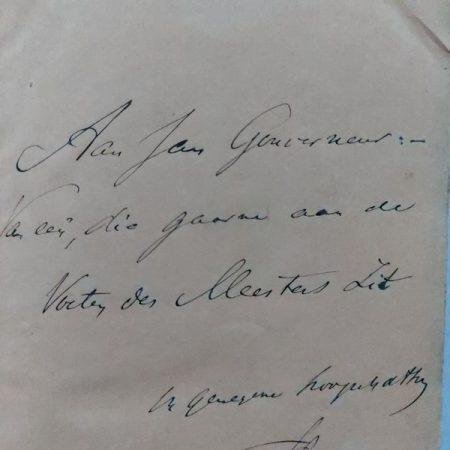 Aan Jan Gouverneur:-
Van een, die gaarne aan de
Voeten des Meesters Zit
genegene hoogachting